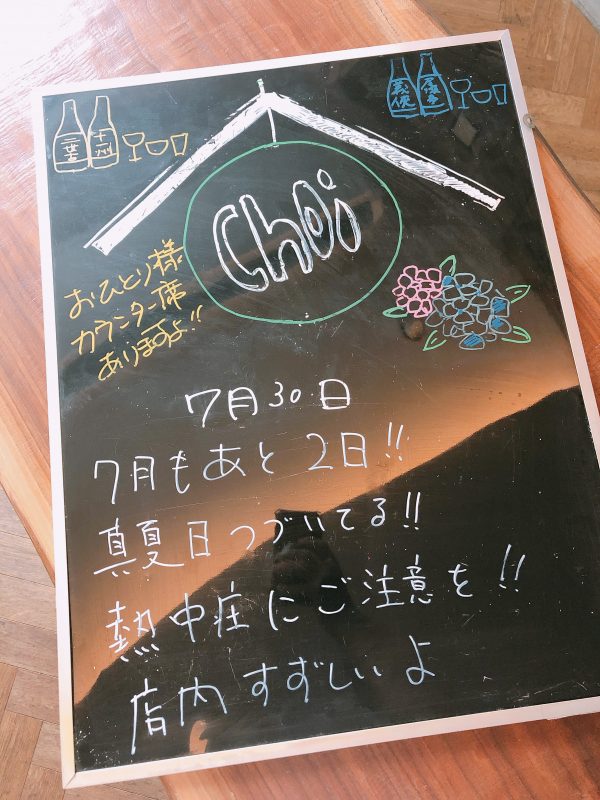 三芳
十一州
義侠
Choi
おひとり様
カウンター席
ありますよ!!
7月30日
7月もあと2日!!
真夏日つづいてる!!
熱中症にご注意を!!
店内すずしいよ